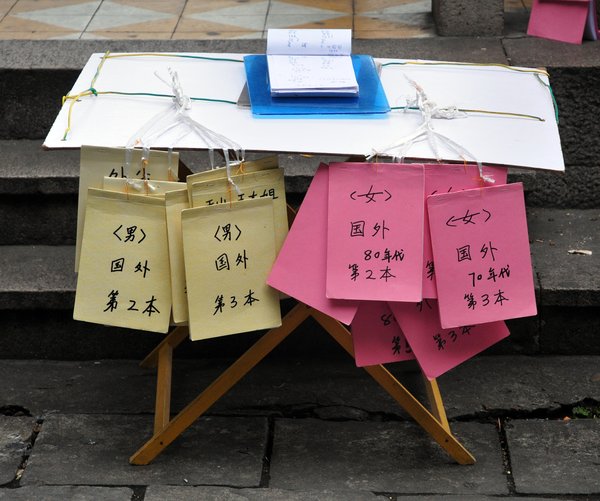 〈男〉
国外
第2本
〈男〉
国外
第3本
〈女〉
国外
80年代
第2本
〈女〉
国外
70年代
第3本
80